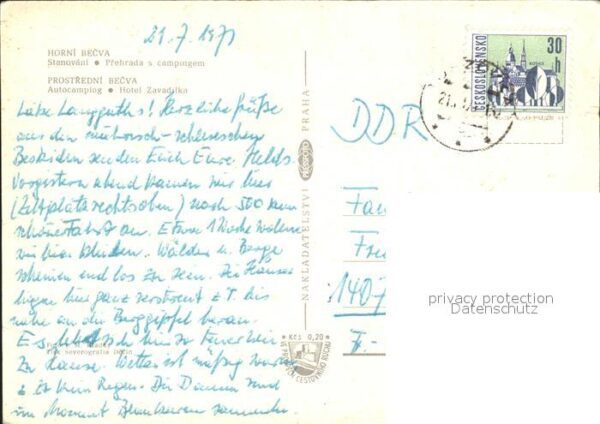 21.7.1971
HORNÍ BEČVA
Stanování • Přehrada s campingem
PROSTŘEDNÍ BEČVA
Autocamping • Hotel Zavadilka
Liebe Langguths! Herzliche Grüße
aus den mährisch-schlesischen
Beskiden senden Euch Eure Helds.
Vorgestern abend kamen wir hier
(Zeltplatz rechts oben) nach 500 km
schöner Fahrt an. Etwa 1 Woche wollen
wir hier bleiben. Wälder u. Berge
scheinen endlos zu sein. Die Häuser
liegen hier ganz verstreut z.T. bis
nahe an die Berggipfel heran.
Es lebt sich hier so
zu Hause. Wetter ist mäßig warm
u. ist kein Regen. Die Damen sind
im Moment Blaubeeren sammeln.
Tisk severografia Děčín
NAKLADATELSTVÍ PRESSFOTO PRAHA
Kčs 0,20
VE PROSPĚCH CESTOVNÍHO RUCHU
ČESKOSLOVENSKO
30
h
DDR
Fam
Fr
1407
privacy protection
Datenschutz